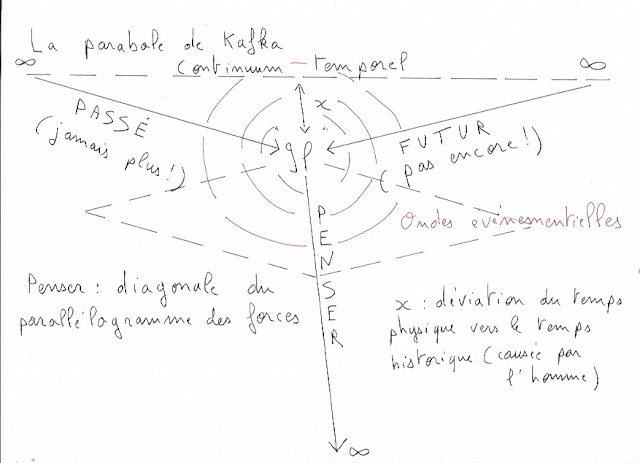 La parabole de Kafka
continuum temporel
∞
∞
x
PASSÉ
(jamais plus!)
FUTUR
(pas encore!)
PENSER
Ondes evénementielles
Penser: diagonale du
parallélogramme des forces
x : déviation du temps
physique vers le temps
historique (causée par
l'homme)
∞